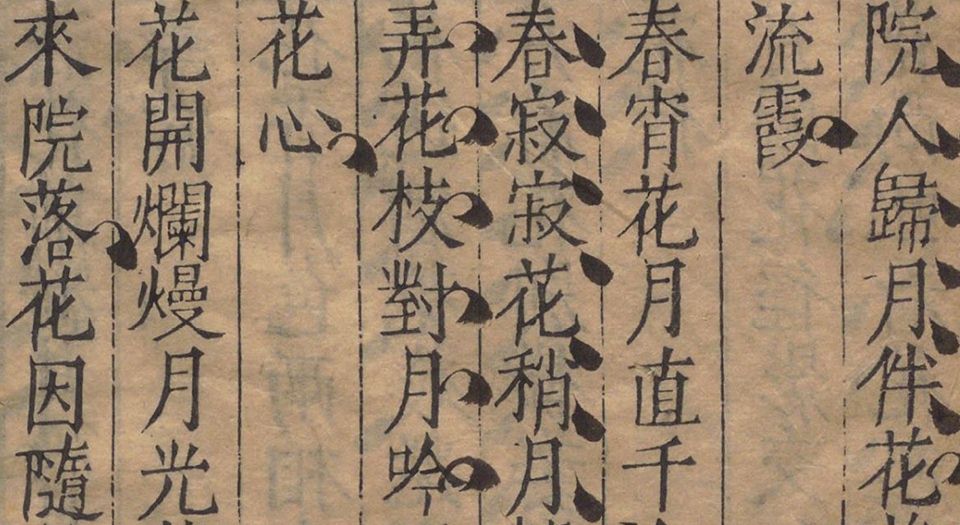 院人歸月伴花
流霞
春宵花月直千
春寂寂花稍月
弄花枝對月吟
花心
花開爛熳月光
來院落花因隨